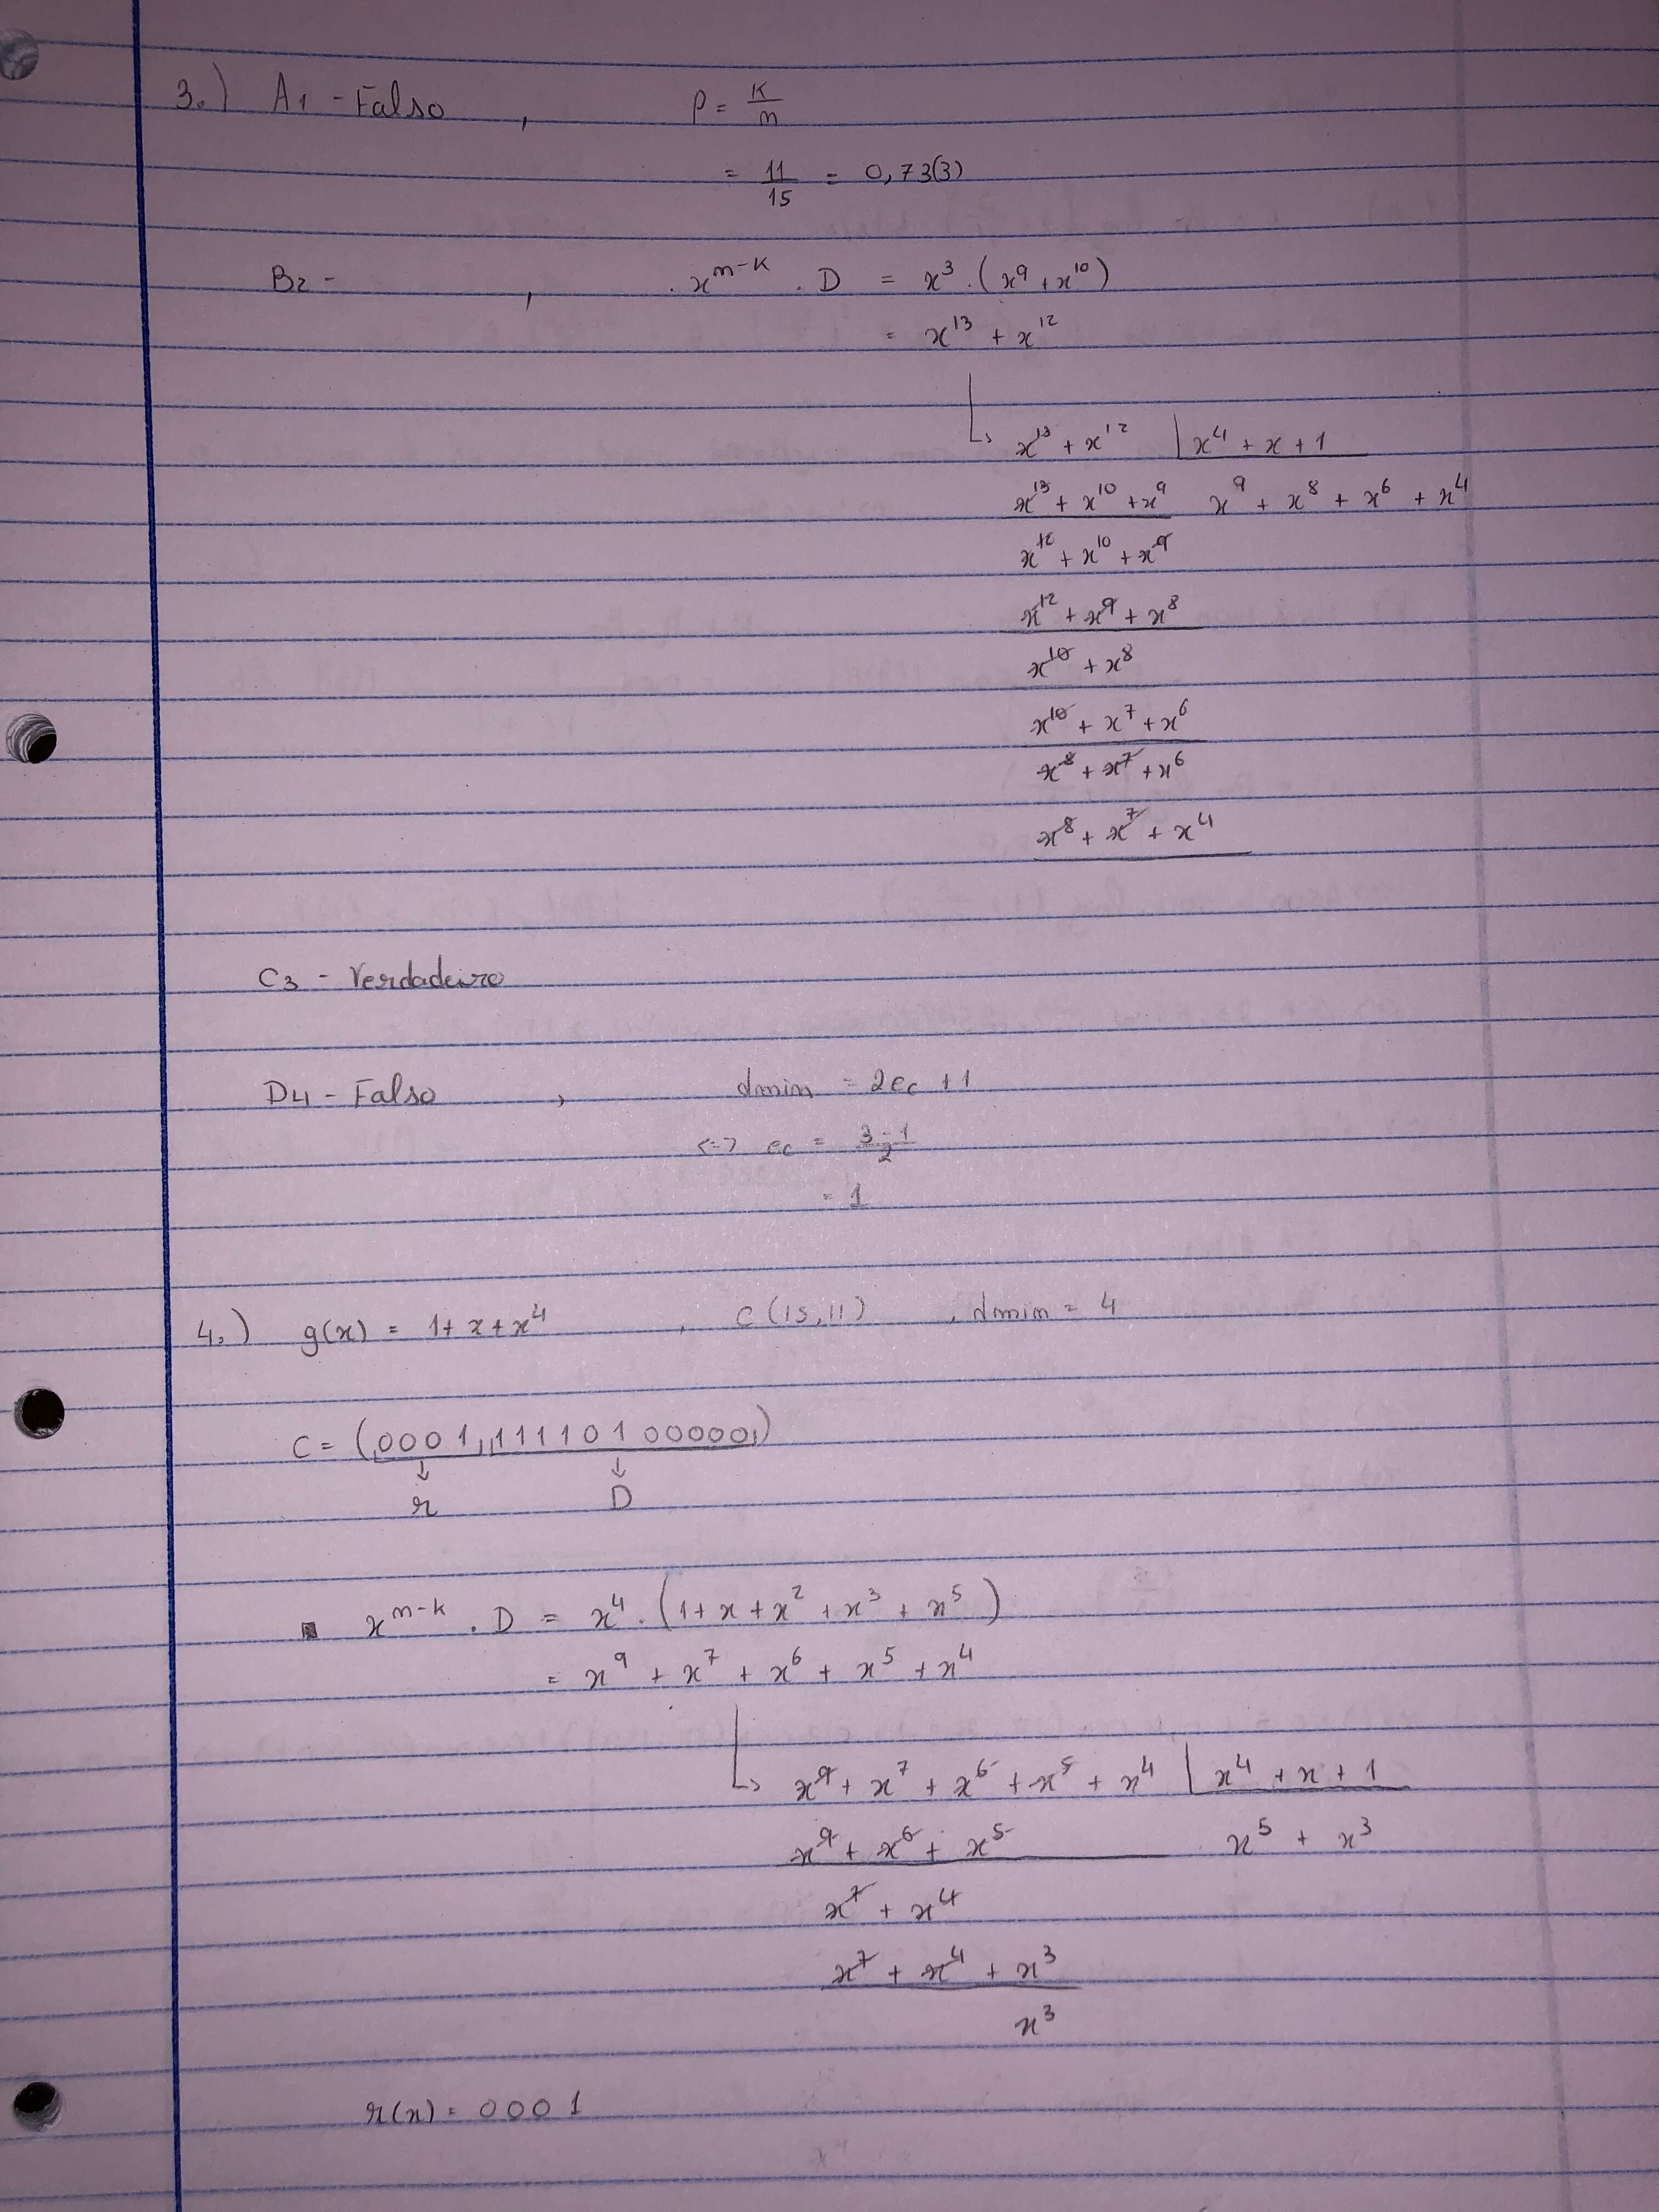 3.) A1 - Falso , ρ = K/n
= 11/15 = 0,73(3)
B2 - , . x^(n-k) . D = x^3 . (x^9 + x^10)
= x^13 + x^12
↳ x^13 + x^12 | x^4 + x + 1
x^13 + x^10 + x^9 x^9 + x^8 + x^6 + x^4
x^12 + x^10 + x^9
x^12 + x^9 + x^8
x^10 + x^8
x^10 + x^7 + x^6
x^8 + x^7 + x^6
x^8 + x^7 + x^4
C3 - Verdadeiro
D4 - Falso , dmin = 2ec + 1
<=> ec = (3-1)/2
= 1
4.) g(x) = 1 + x + x^4 , C(15,11) , dmin = 4
C = (0001,111101000001)
↓ ↓
r D
x^(n-k) . D = x^4 . (1 + x + x^2 + x^3 + x^5)
= x^9 + x^7 + x^6 + x^5 + x^4
↳ x^9 + x^7 + x^6 + x^5 + x^4 | x^4 + x + 1
x^9 + x^6 + x^5 x^5 + x^3
x^7 + x^4
x^7 + x^4 + x^3
x^3
r(x) = 0001